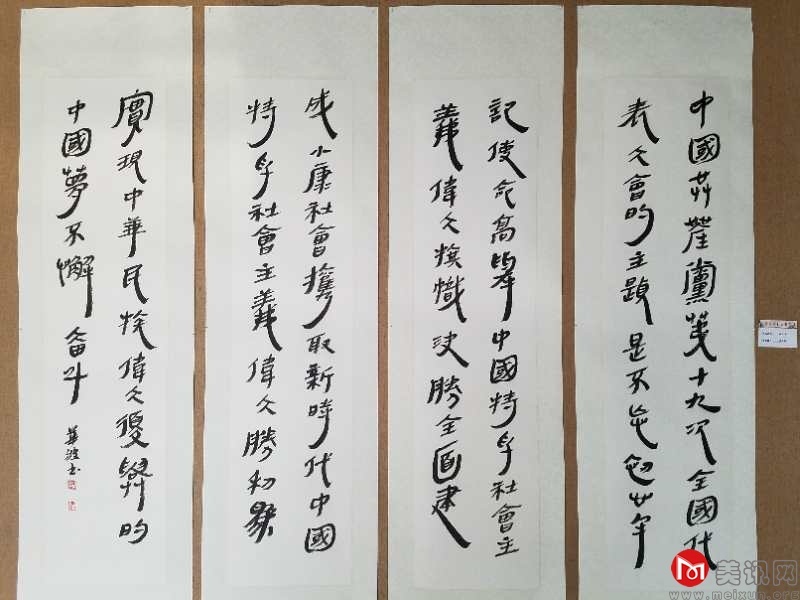 中國共產黨第十九次全國代
表大會的主題是不忘初心牢
記使命高舉中國特色社會主
義偉大旗幟決勝全面建
成小康社會取新時代中國
特色社會主義偉大勝利為
實現中華民族偉大復興的
中國夢不懈奮斗
華波书
美讯网
www.meixun.org